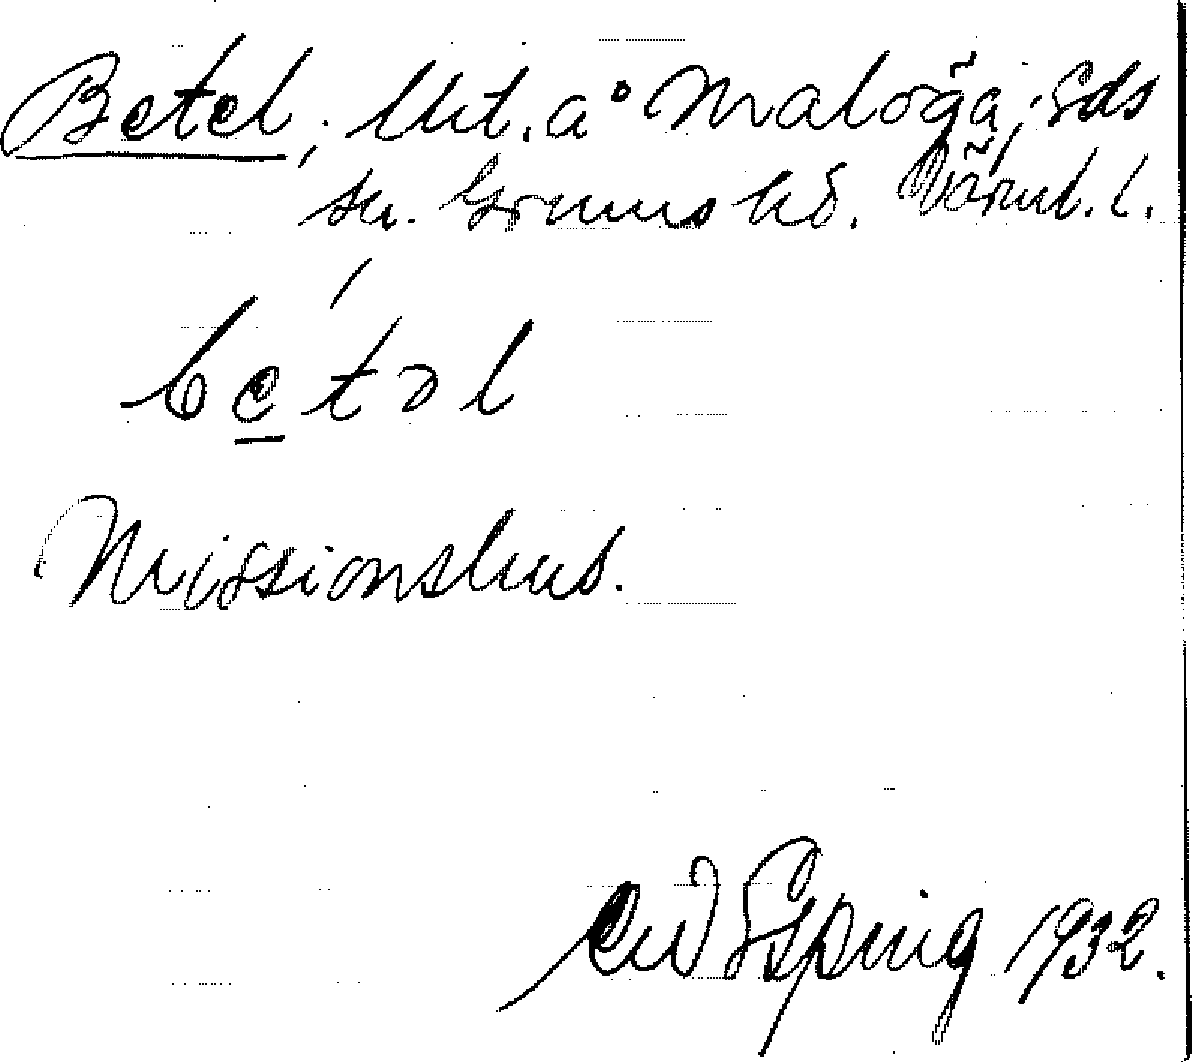 Betel, lht. å Malöga, Eds
sn. Grums hd. Värml. l.
be̲təl
Missionshus.
Esping 1932.